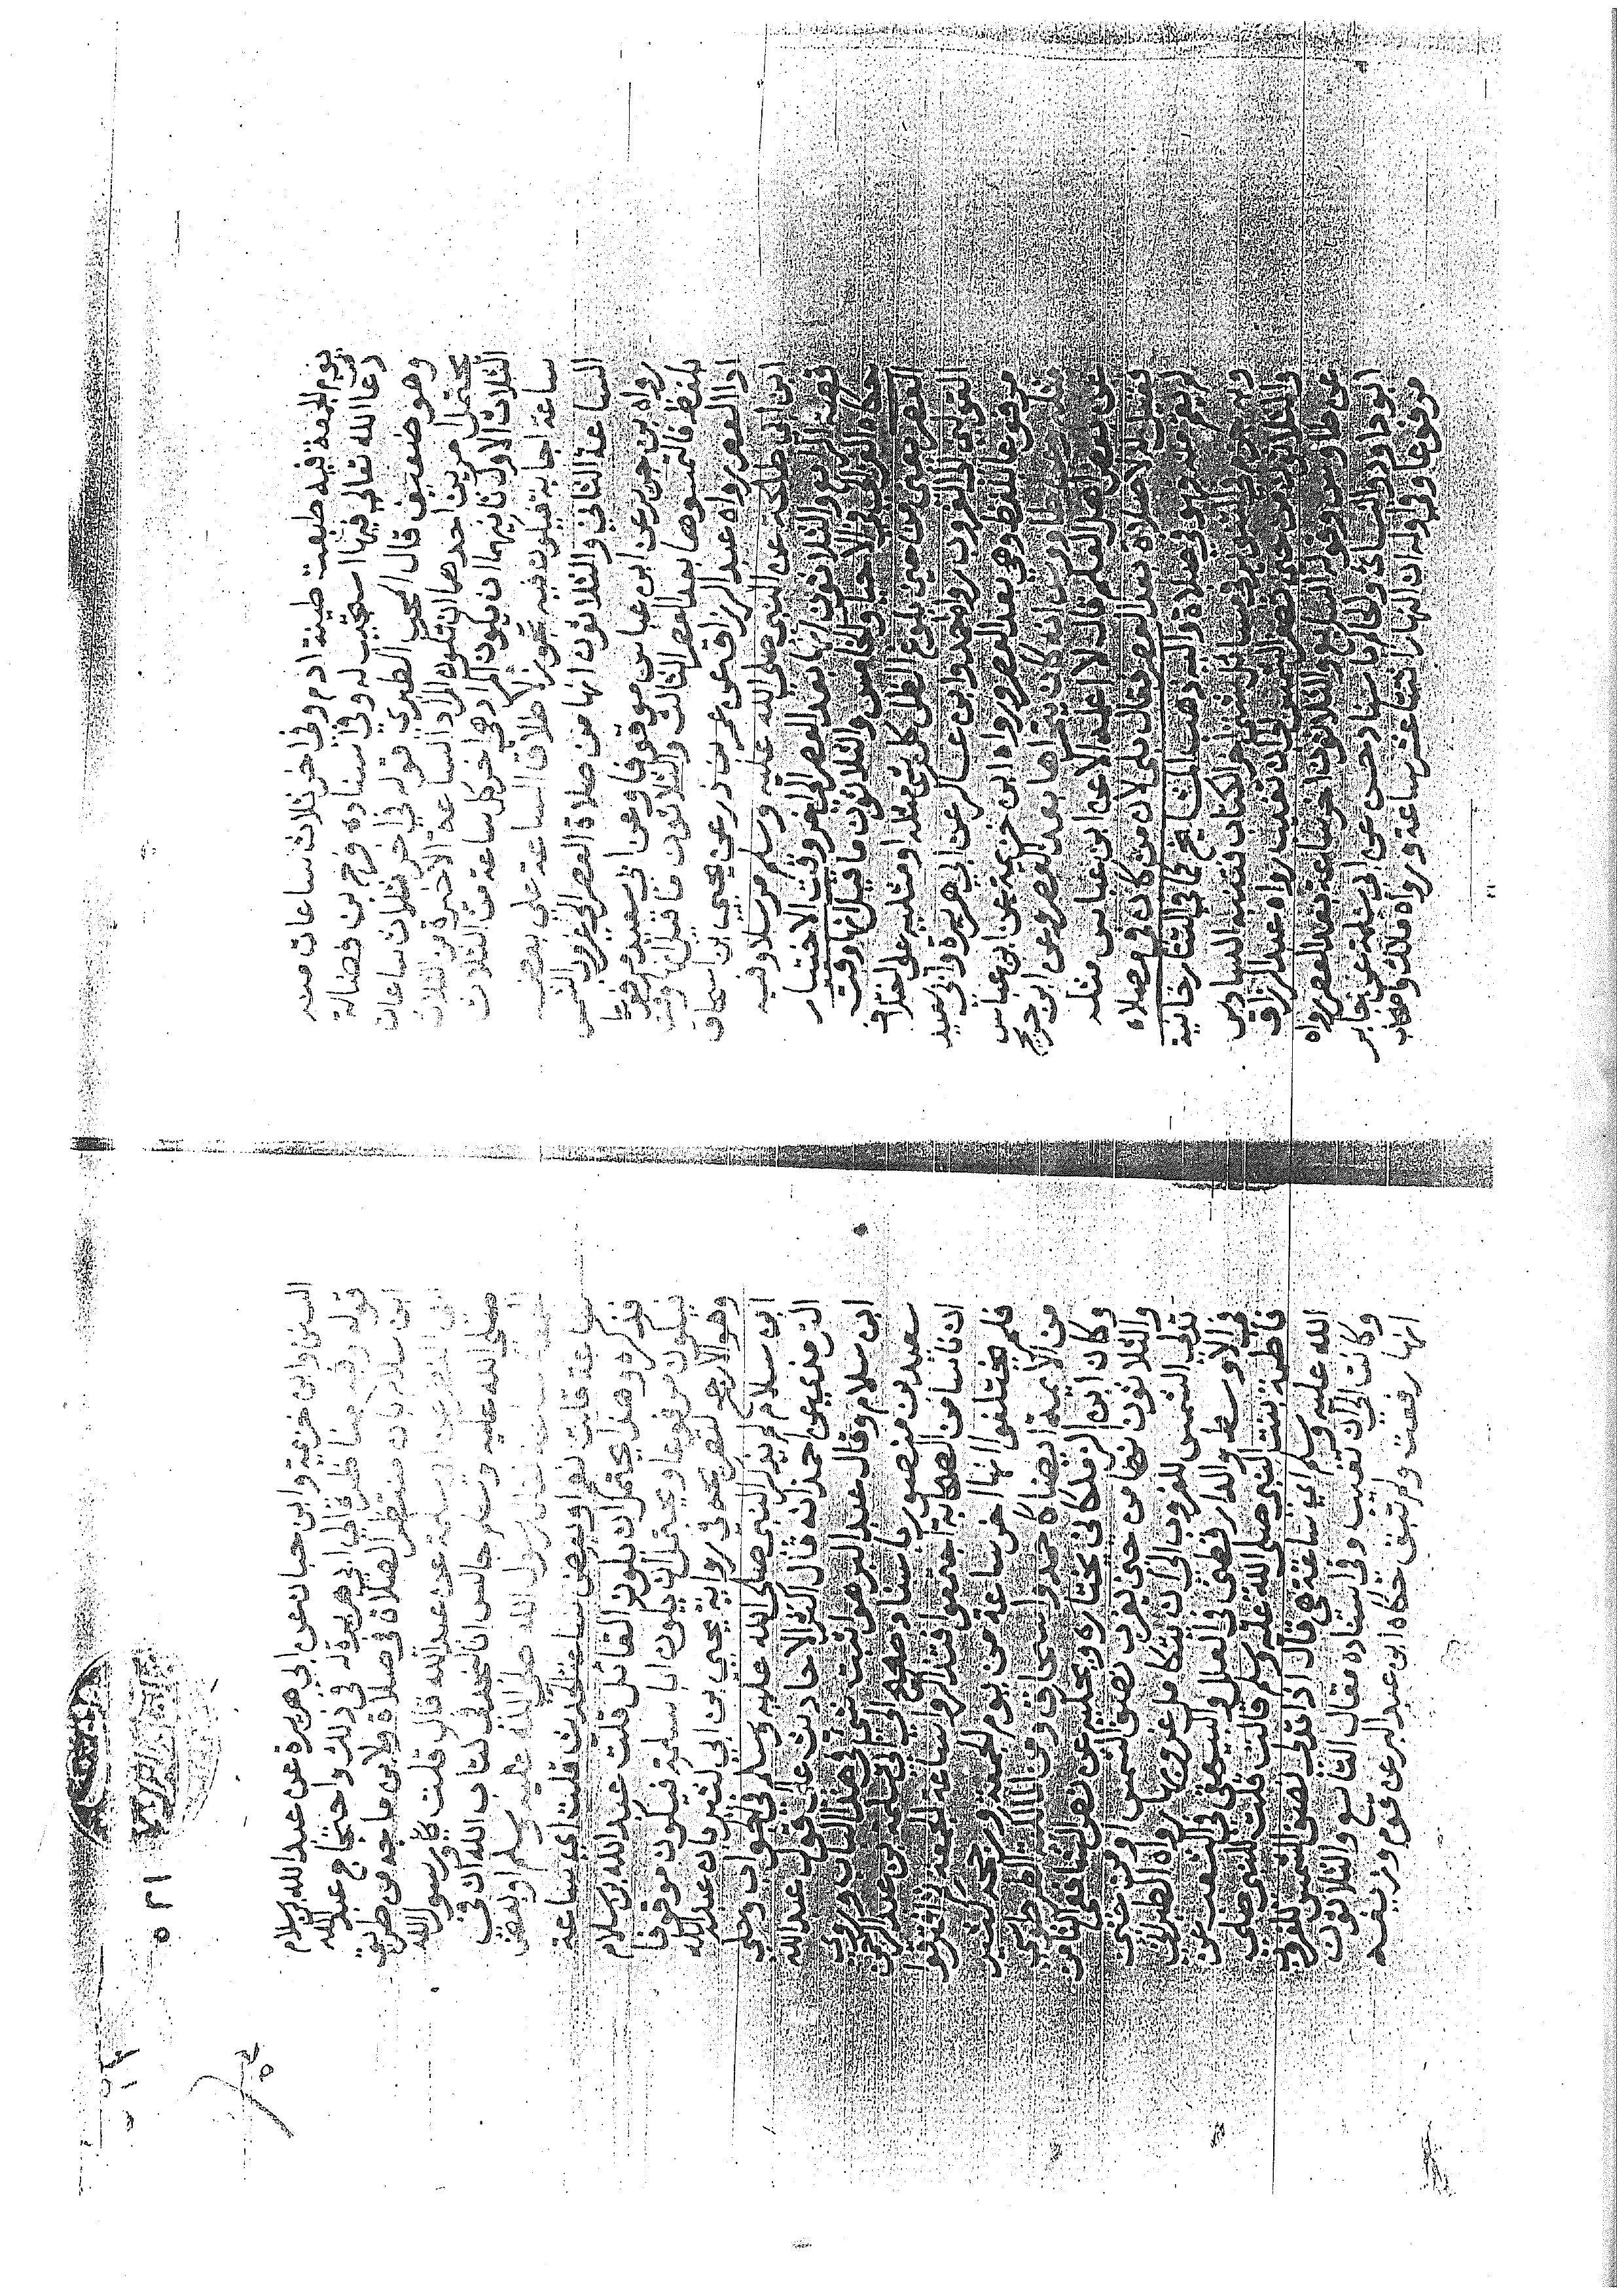 يوم الجمعة فيه طبعت طينة ادم وفي اخر ثلاث ساعات منه
دعا الله تعالى فيها استجيب له وفي اسناده فرج بن فضالة
وهو ضعيف قال المحب الطبري قوله في اخر ثلاث ساعات
يحتمل امرين احدهما ان تكون المراد الساعة الاخيرة من الثلاث
الثلاث الاول ثانيهما ان يكون المراد في اخر كل ساعة من الثلاث
ساعة اجابة فيكون فيه تجوز لاطلاق الساعة على بعض
الساعة الثاني والثلاثون انها من صلاة العصر الى غروب الشمس
رواه ابن جرير عن ابن عباس موقوفا وعن ابي سعيد مرفوعا
بلفظ فالتمسوها بعد العصر الثالث والثلاثون ما قيل ان وقت
او العصر رواه عبد الرزاق عن عمر بن ذر عن يحيى بن اسحاق
ابن ابي طلحة عن النبي صلى الله عليه وسلم مرسلا وفيه
قصة الرابع والثلاثون انها بعد العصر الى اخر وقت الاختيار
حكاه الغزالي في الاحيا والخامس والثلاثون ما قيل انها وقت
العصر يعني من حين بلوغ الظل كل شي مثله او مثليه على اختلاف
القولين الى الغروب رواه احمد وابن عساكر عن ابي هريرة وابي سعيد
مرفوعا بلفظ وهي بعد العصر ورواه ابن خزيمة عن ابن عباس
مثله طاوس انه كان يتحراها بعد العصر وعن ابن جريج
عن بعض اهل العلم قال لا اعلمه الا عن ابن عباس مثله
فقيل له لا صلاة بعد العصر فقال بلى لان من كان في مصلاه
لم يقم منه فهو في صلاة واليه ذهب المشايخ كما في التتارخانية
وبه جزم في مسائل شتى اخر الكتاب فتنبه السادس
والثلاثون من حين تصفر الشمس الى ان تغيب رواه عبد الرزاق
عن طاوس وقوله السابع والثلاثون اخر ساعة بعد العصر رواه
ابو داود والنسائي والحاكم باسناد حسن عن ابي سلمة عن جابر
مرفوعا وفي اوله ان النهار اثنتا عشر ساعة ورواه مالك واصحاب
السنن وابن خزيمة وابن حبان عن ابي هريرة عن عبد الله بن سلام
قوله وفيه مناظرة ابي هريرة له في ذلك واحتجاج عبد الله
ابن سلام بان منتظر الصلاة في صلاة ولابن ماجه من طريق
ابي النضر عن ابي سلمة عن عبد الله قال قلت ورسول الله
صلى الله عليه وسلم جالس انا لنجد في كتاب الله ان في
رسول الله صلى الله عليه وسلم او بعض
ساعة قلت نعم او بعض ساعة الحديث قلت اي ساعة
فذكره وهذا يحتمل ان يكون القائل قلت عبد الله بن سلام
فيكون مرفوعا ويحتمل ان يكون ابا سلمة فيكون موقوفا
وهو الارجح لتصريحه في رواية يحيى بن ابي كثير بان عبد الله
ابن سلام لم يذكر النبي صلى الله عليه وسلم في الجواب وحكى
الترمذي عن احمد انه قال اكثر الاحاديث على قول عبد الله
ابن سلام وقال عبد البر هو اثبت شي في هذا الباب وروى
سعيد بن منصور باسناد صحيح الى ابي سلمة بن عبد الرحمن
ان ناسا من الصحابة اجتمعوا فتذاكروا ساعة الجمعة ثم افترقوا
فلم يختلفوا انها اخر ساعة من يوم الجمعة ورجحه كثير
من الايمة ايضا كاحمد واسحاق ومن المالكية الطرطوشي
وكان ابن الزملكاني يختاره ويحكيه عن نص الشافعي الثامن
والثلاثون انها من حين تغرب نصف الشمس او من حين
تدلى الشمس للغروب الى ان يتكامل غروبها رواه الطبراني
في الاوسط والدارقطني في العلل والبيهقي في الشعب عن
فاطمة بنت النبي صلى الله عليه وسلم قالت قلت للنبي صلى
الله عليه وسلم اي ساعة هي قال اذا تدلى نصف الشمس للغروب
وكانت الى ان تغيب وفي اسناده مقال التاسع والثلاثون
انها رفعت ولم تبق حكاه ابن عبد البر عن قوم وزيفه
٥٢١